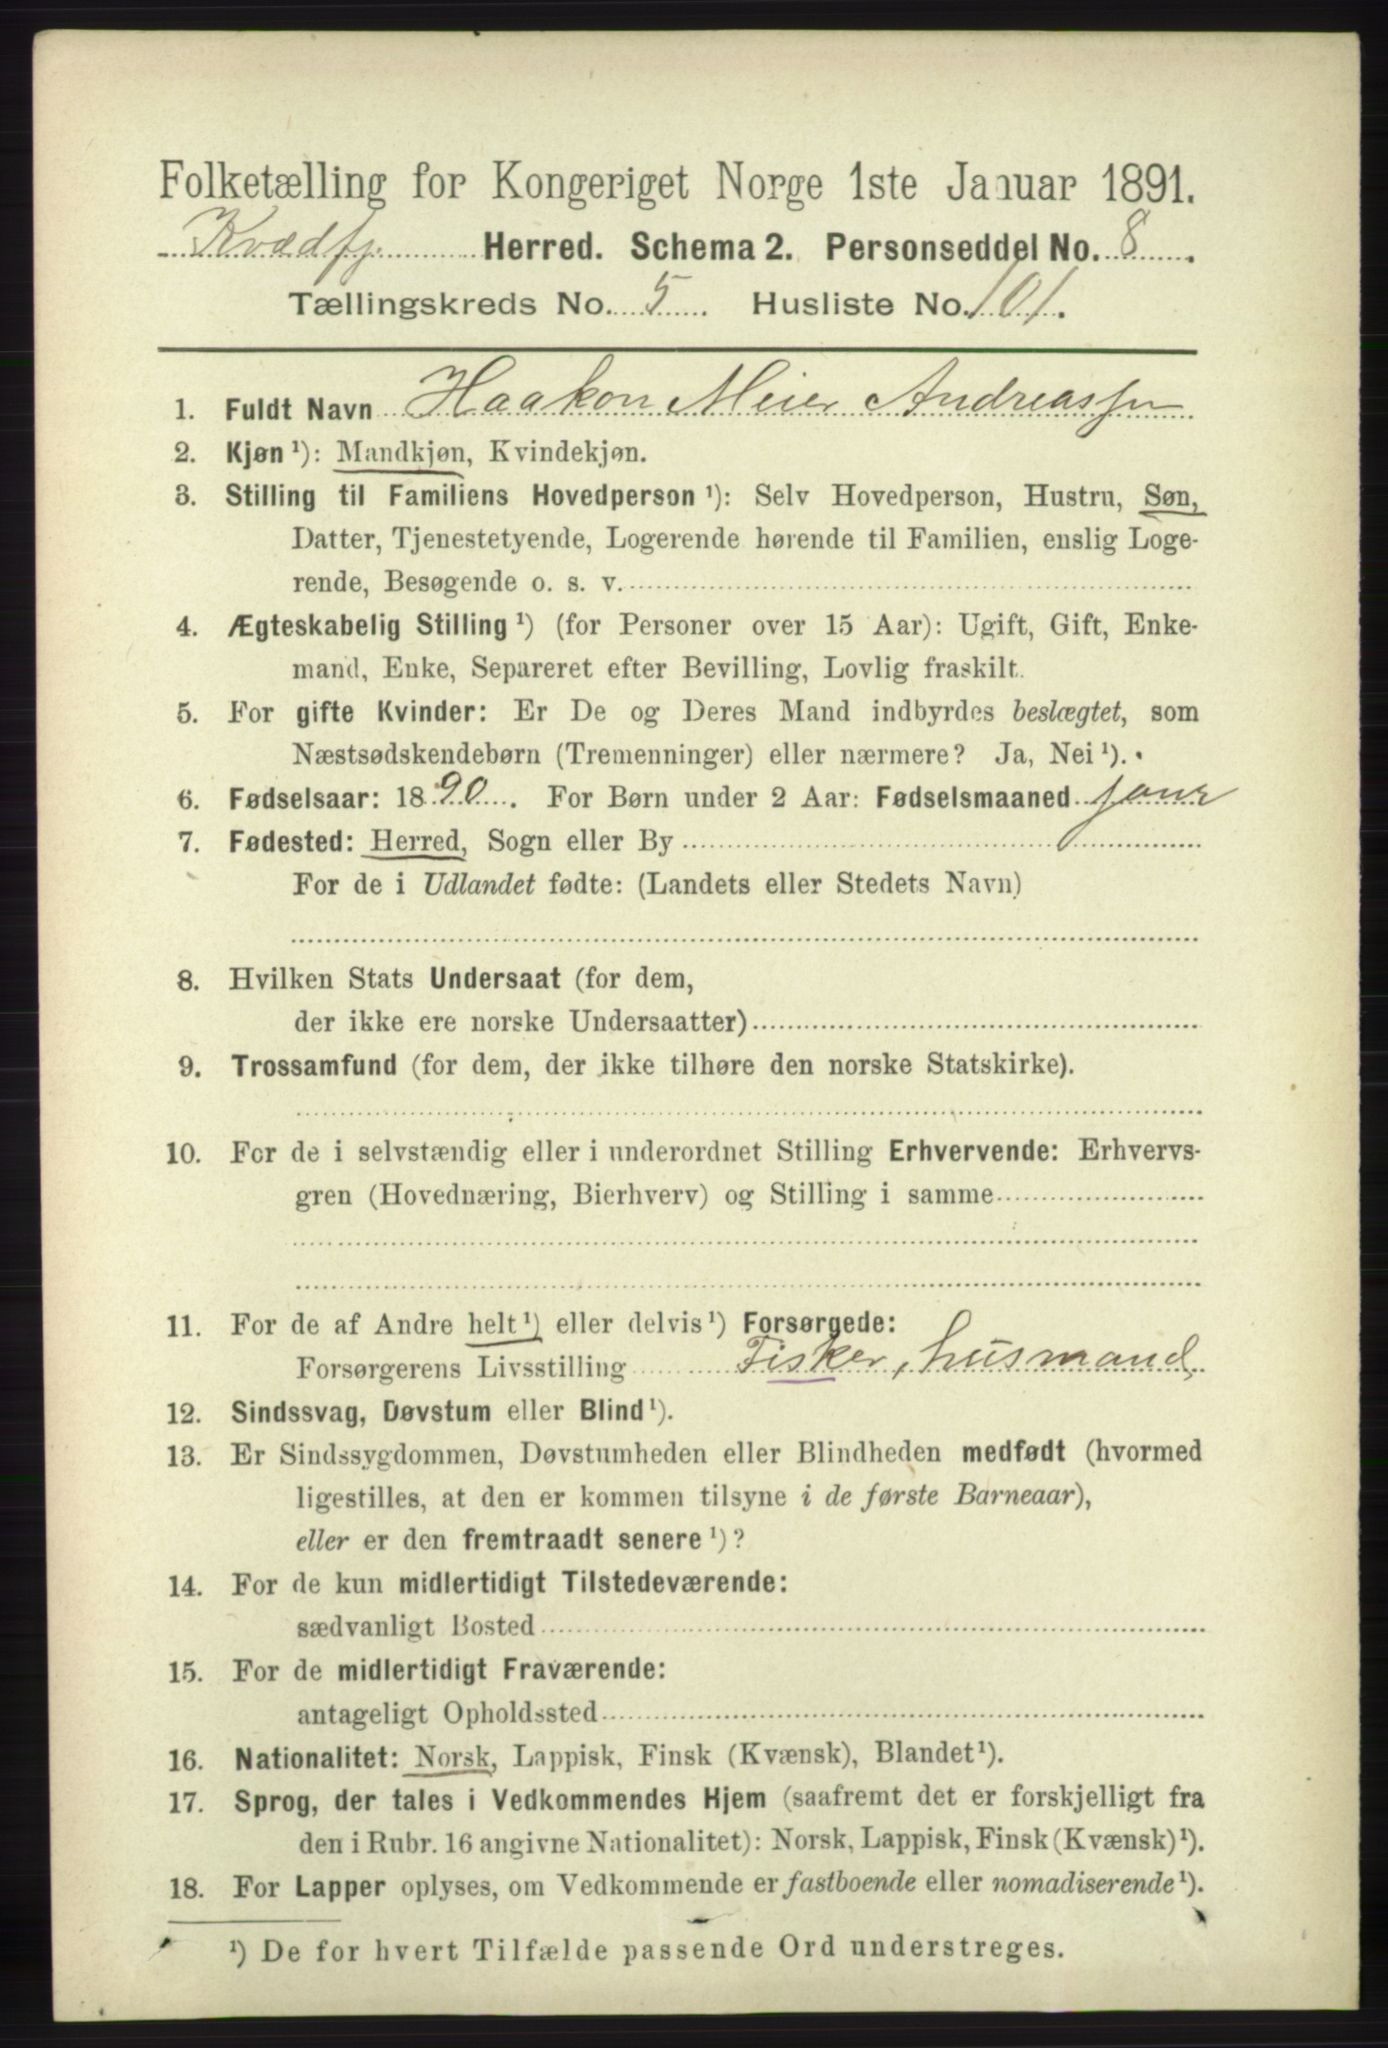 Folketælling for Kongeriget Norge 1ste Januar 1891.
Kvædfj. Herred. Schema 2. Personseddel No. 8.
Tællingskreds No. 5. Husliste No. 101.
1. Fuldt Navn Haakon Meier Andreassen
2. Kjøn ¹): Mandkjøn, Kvindekjøn.
3. Stilling til Familiens Hovedperson ¹): Selv Hovedperson, Hustru, Søn,
Datter, Tjenestetyende, Logerende hørende til Familien, enslig Loge-
rende, Besøgende o. s. v.
4. Ægteskabelig Stilling ¹) (for Personer over 15 Aar): Ugift, Gift, Enke-
mand, Enke, Separeret efter Bevilling, Lovlig fraskilt.
5. For gifte Kvinder: Er De og Deres Mand indbyrdes beslægtet, som
Næstsødskendebørn (Tremenninger) eller nærmere? Ja, Nei ¹).
6. Fødselsaar: 1890. For Børn under 2 Aar: Fødselsmaaned
7. Fødested: Herred, Sogn eller By
For de i Udlandet fødte: (Landets eller Stedets Navn)
8. Hvilken Stats Undersaat (for dem,
der ikke ere norske Undersaatter)
9. Trossamfund (for dem, der ikke tilhøre den norske Statskirke).
10. For de i selvstændig eller i underordnet Stilling Erhvervende: Erhvervs-
gren (Hovednæring, Bierhverv) og Stilling i samme
11. For de af Andre helt ¹) eller delvis ¹) Forsørgede:
Forsørgerens Livsstilling Fisker, husmand
12. Sindssvag, Døvstum eller Blind ¹).
13. Er Sindssygdommen, Døvstumheden eller Blindheden medfødt (hvormed
ligestilles, at den er kommen tilsyne i de første Barneaar),
eller er den fremtraadt senere ¹)?
14. For de kun midlertidigt Tilstedeværende:
sædvanligt Bosted
15. For de midlertidigt Fraværende:
antageligt Opholdssted
16. Nationalitet: Norsk, Lappisk, Finsk (Kvænsk), Blandet ¹).
17. Sprog, der tales i Vedkommendes Hjem (saafremt det er forskjelligt fra
den i Rubr. 16 angivne Nationalitet): Norsk, Lappisk, Finsk (Kvænsk) ¹).
18. For Lapper oplyses, om Vedkommende er fastboende eller nomadiserende ¹).
¹) De for hvert Tilfælde passende Ord understreges.